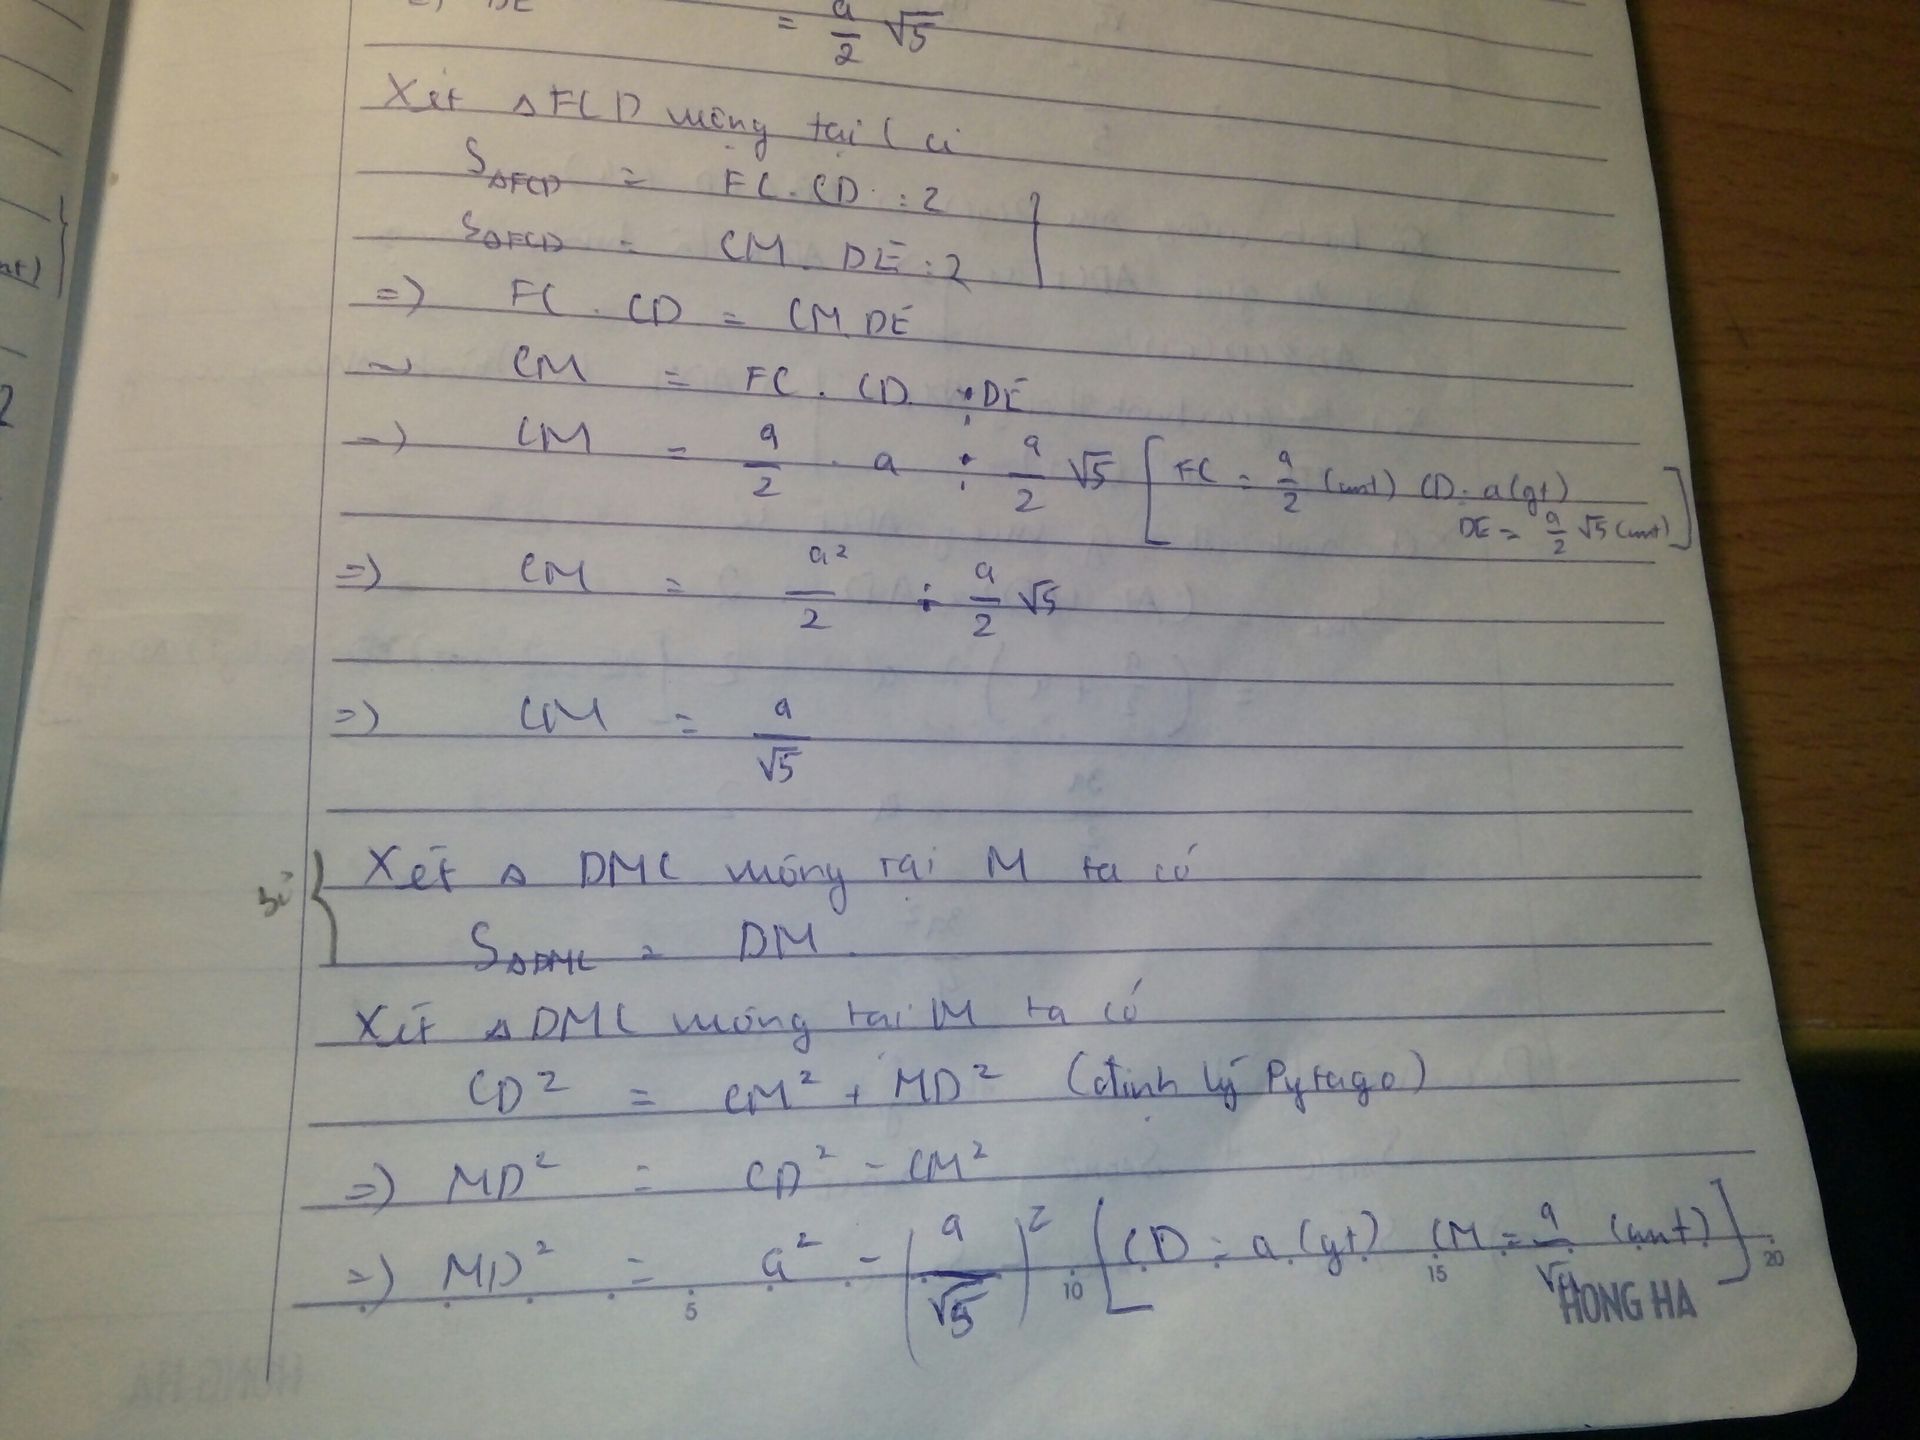 =) DE = a/2 √5
Xét △FCD vuông tại C có
S△FCD = FC . CD : 2
S△FCD = CM . DE : 2
=) FC . CD = CM . DE
=) CM = FC . CD : DE
=) CM = a/2 . a : a/2 √5 [FC = a/2 (cmt) CD = a (gt)
DE = a/2 √5 (cmt)]
=) CM = a²/2 : a/2 √5
=) CM = a/√5
Xét △ DMC vuông tại M ta có
S△DMC = DM .
Xét △DMC vuông tại M ta có
CD² = CM² + MD² (định lý Pytago)
=) MD² = CD² - CM²
=) MD² = a² - (a/√5)² [CD = a (gt) CM = a/√5 (cmt)]
5 10 15 20
HONG HA